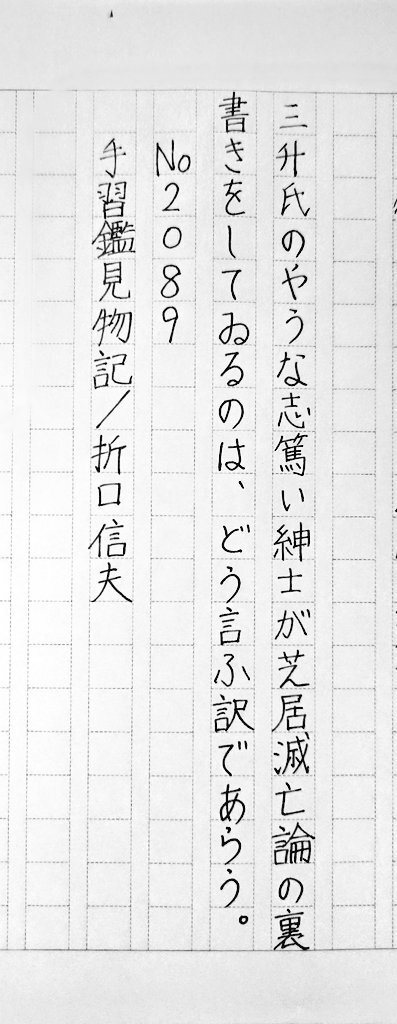 三升氏のやうな志篤い紳士が芝居滅亡論の裏
書きをしてゐるのは、どう言ふ訳であらう。
No2089
手習鑑見物記/折口信夫